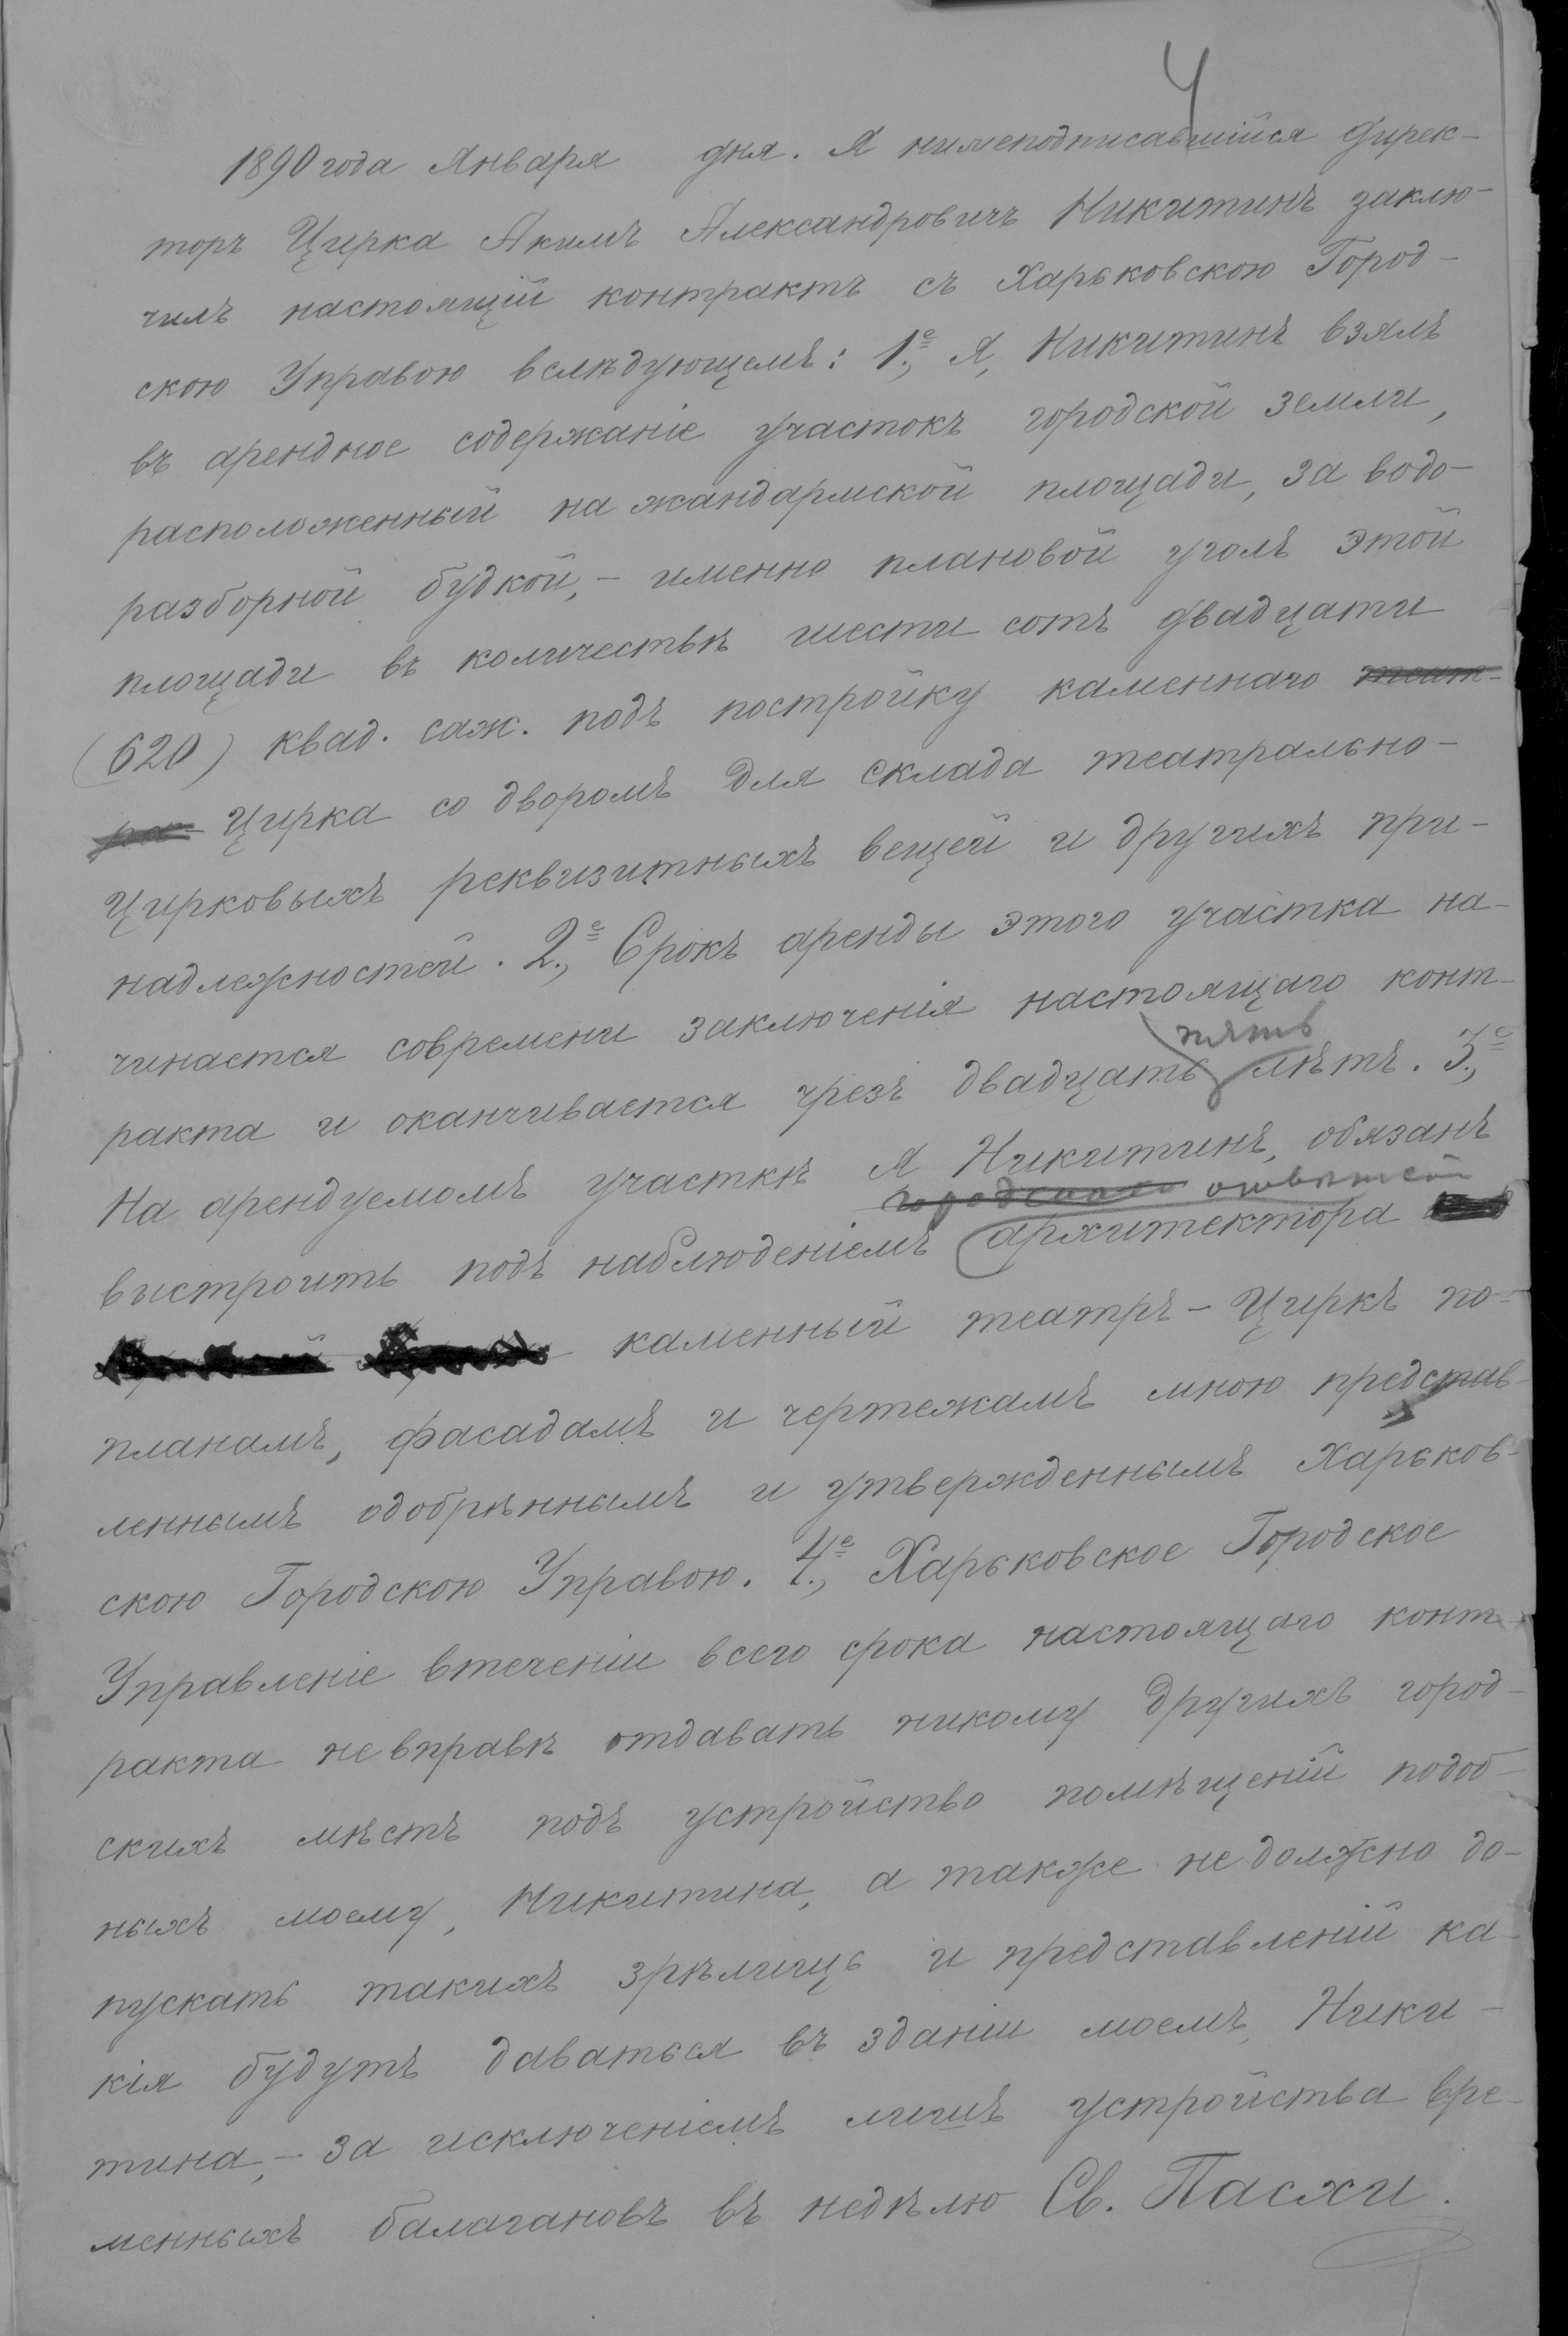 4
1890 года Января дня. Я нижеподписавшійся Дирек-
торъ Цирка Акимъ Александровичъ Никитинъ заклю-
чилъ настоящій контрактъ съ Харьковскою Город-
скою Управою вслѣдующемъ: 1.е, Я, Никитинъ взялъ
въ арендное содержаніе участокъ городской земли,
расположенный на жандармской площади, за водо-
разборной будкой, - именно плановой уголъ этой
площади въ количествѣ шести сотъ двадцати
(620) квад. саж. подъ постройку каменнаго теат-
ра- Цирка со дворомъ для склада театрально-
цирковыхъ реквизитныхъ вещей и другихъ при-
надлежностей. 2.е, Срокъ аренды этого участка на-
чинается современи заключенія настоящаго конт-
пять
ракта и оканчивается чрезъ двадцать лѣтъ. 3.е,
На арендуемомъ участкѣ я Никитинъ, обязанъ
городского
выстроить подъ наблюденіемъ архитектора
каменный театръ - Циркъ по-
планамъ, фасадамъ и чертежамъ мною представ-
леннымъ одобрѣннымъ и утвержденнымъ Харьков-
скою Городскою Управою. 4.е, Харьковское Городское
Управленіе втеченіи всего срока настоящаго конт-
ракта невправѣ отдавать никому другихъ город-
скихъ мѣстъ подъ устройство помѣщеній подоб-
ныхъ моему, Никитина, а также не должно до-
пускать такихъ зрѣлищь и представленій ка-
кія будутъ даваться въ зданіи моемъ, Ники-
тина, - за исключеніемъ лишъ устройства вре-
менныхъ балагановъ въ недѣлю Св. Пасхи.